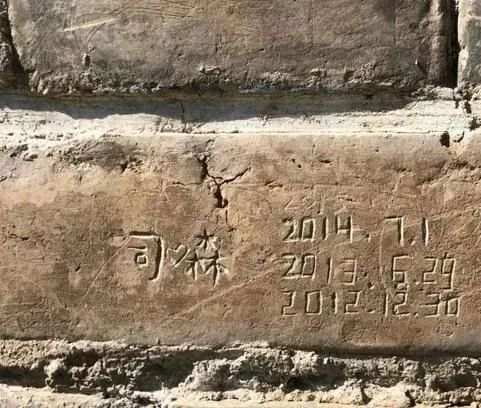 司♡森
2014.7.1
2013.6.29
2012.12.30